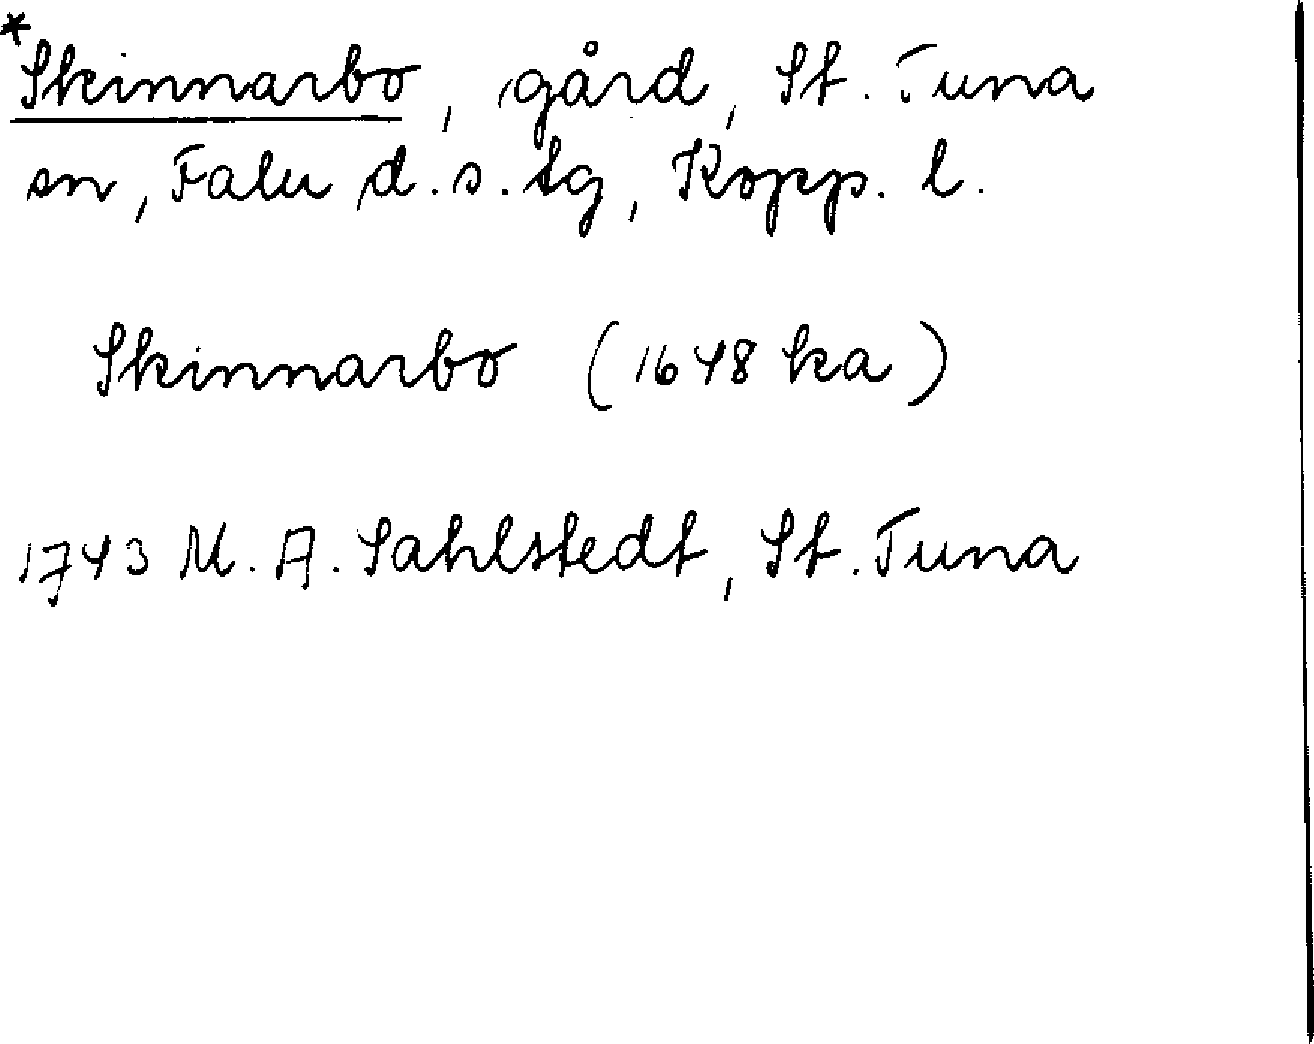 *Skinnarbo, gård, St. Tuna
sn, Falu d.s.tg, Kopp. l.
Skinnarbo (1648 ka)
1743 M. A. Sahlstedt, St. Tuna